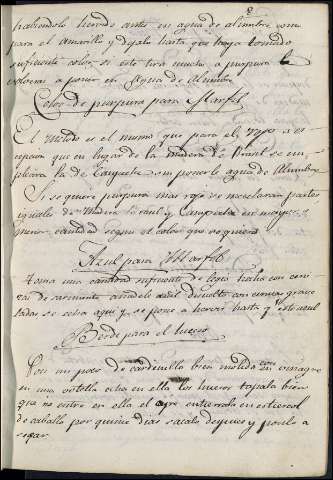 habiendolo hervido antes en agua de alumbre como
para el amarillo y dejalo hasta que haya tomado
suficiente color, si este tira mucho a purpura
volveras a poner en Agua de Alumbre
Color de purpura para Marfil
El metodo es el mismo que para el rojo a es
cepcion que en lugar de la madera de Brasil se em
pleara la de Campeche sin ponerle agua de Alumbre
Si se quiere purpura mas rojo se mezclaran partes
iguales de Madera Brasil y Campeche en mayor o
menor cantidad segun el color que se quiera
Azul para Marfil
Toma una cantidad suficiente de legia hecha con ceni
zas de sarmiento añadele añil disuelto con
se echa aqui y se pone a hervir hasta q este azul
Berde para el hueso
Con un poco de cardenillo bien molido en vinagre
en una votella echa en ella los huesos tapala bien
que no entre en ella el ayre entierrala en estiercol
de caballo por quince dias sacalo despues y ponlo a
secar